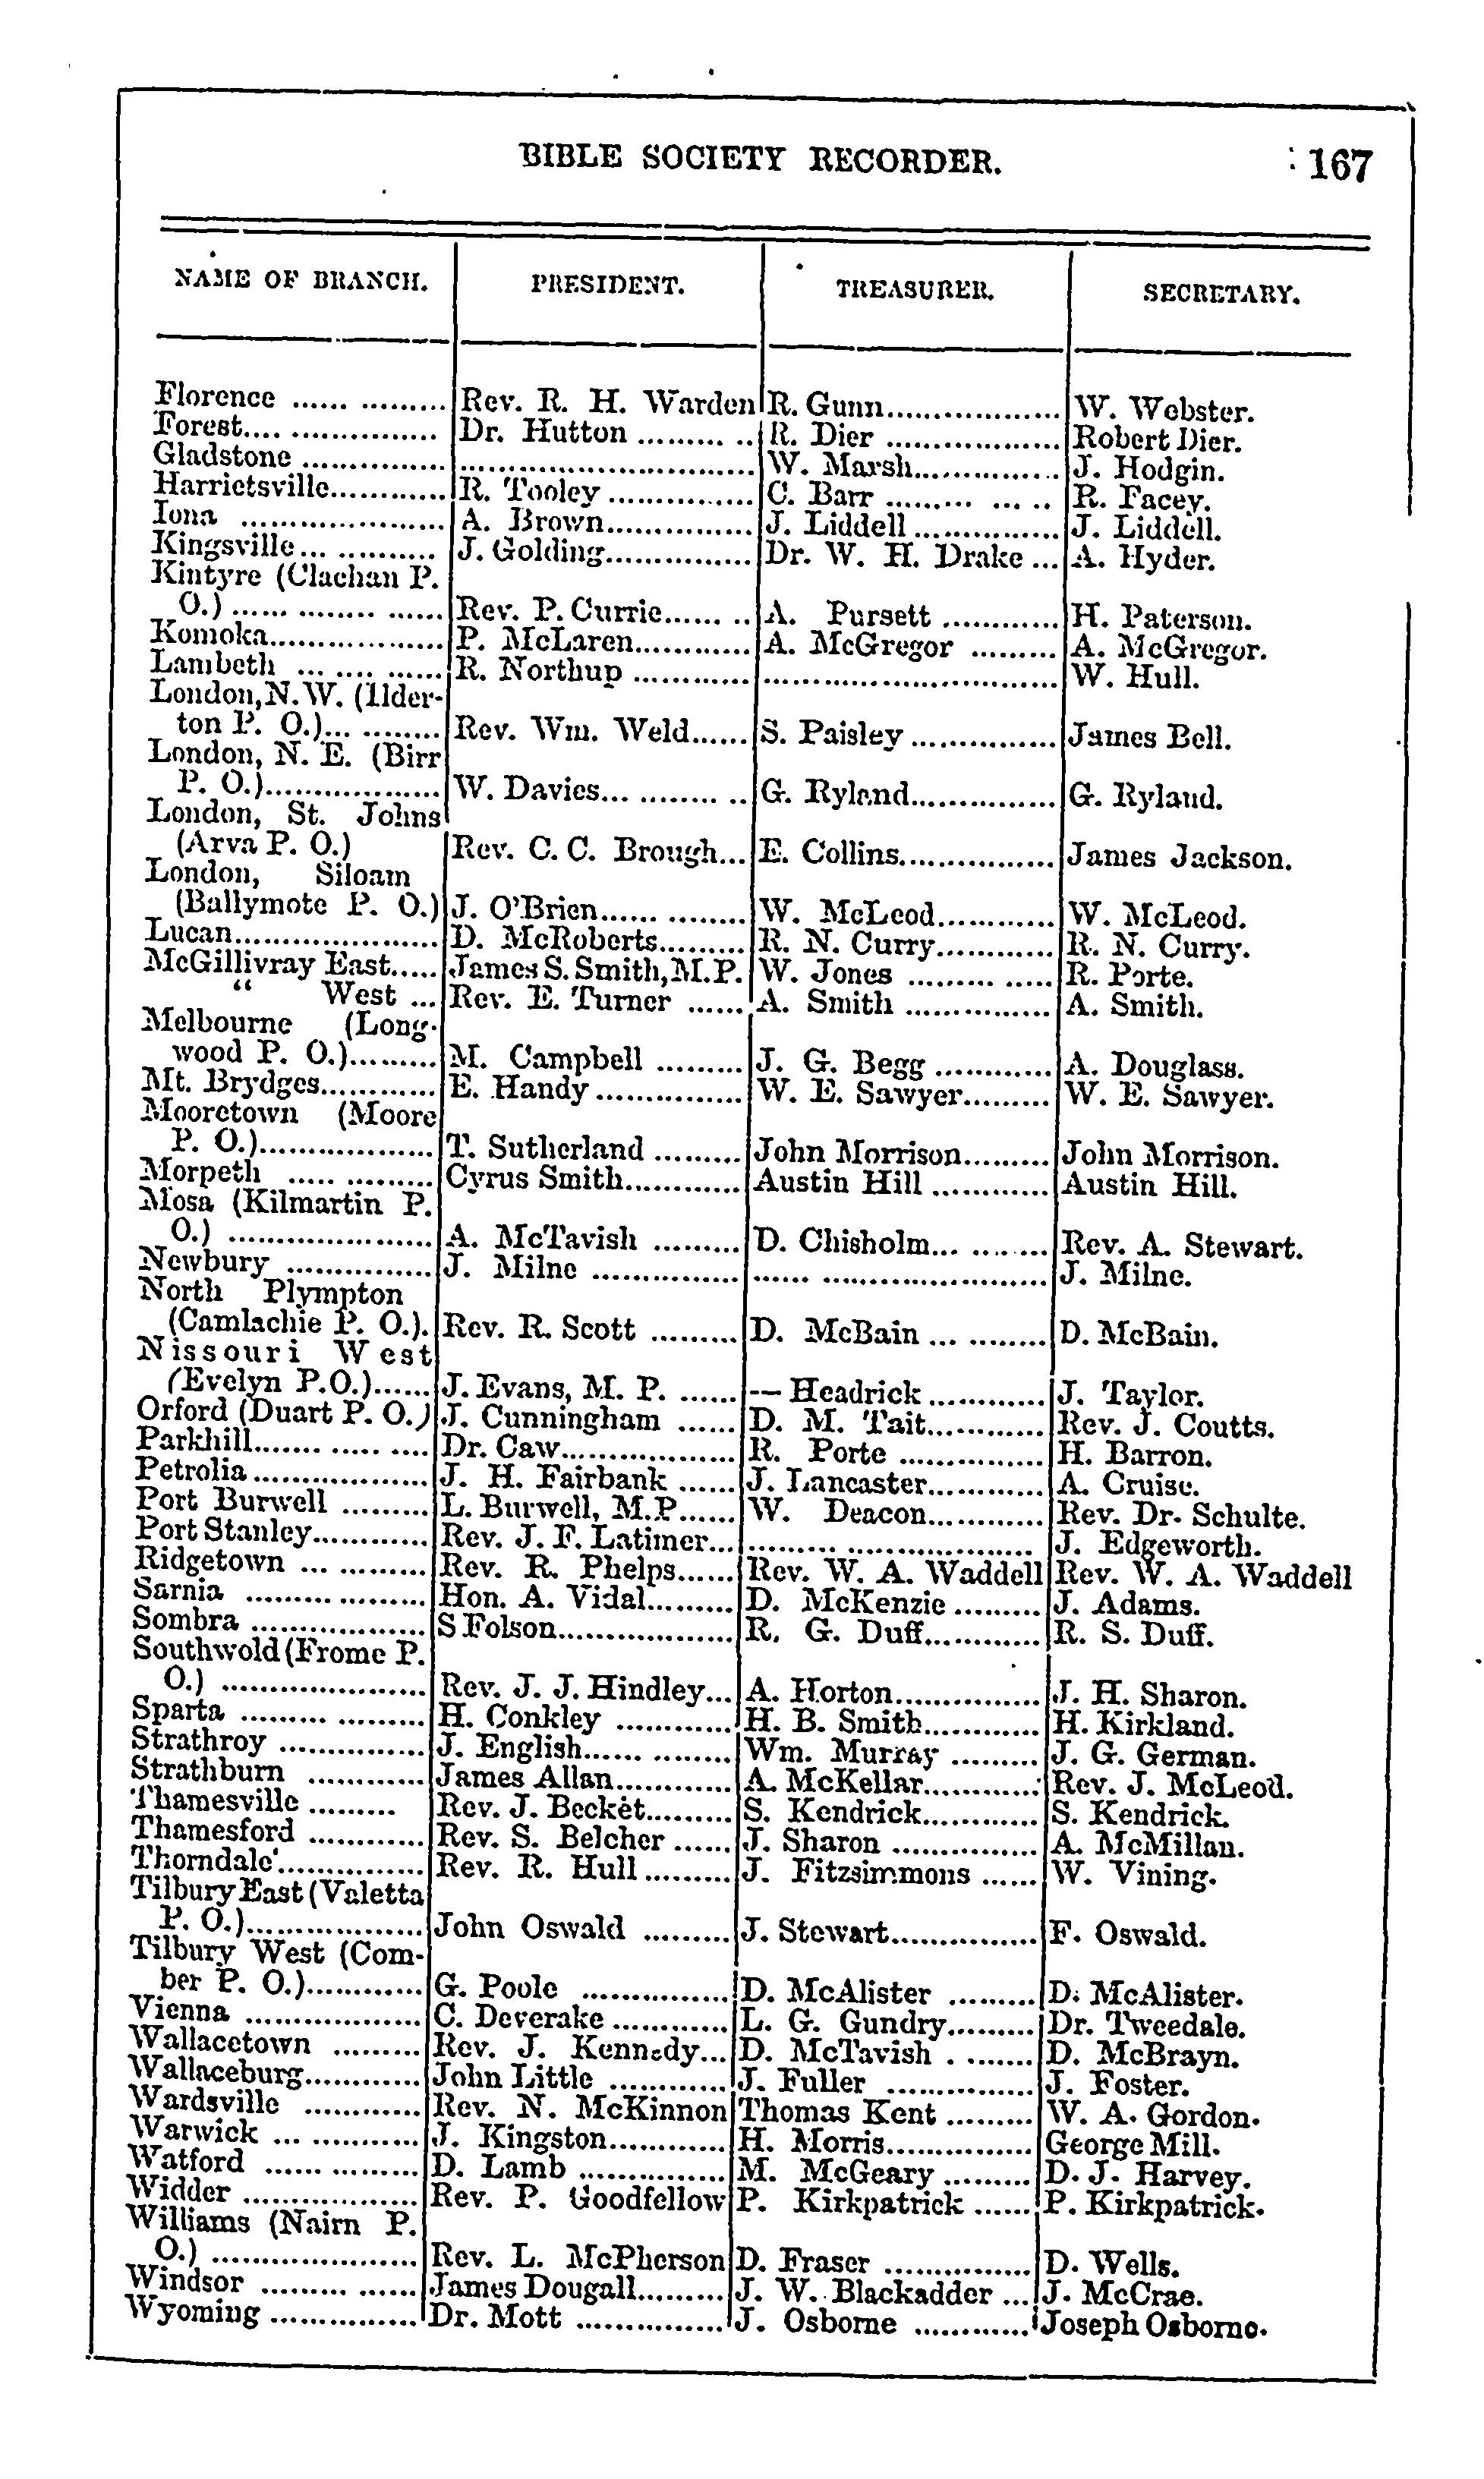 BIBLE SOCIETY RECORDER. 167
NAME OF BRANCH. PRESIDENT. TREASURER. SECRETARY.
Florence ...... ......... Rev. R. H. Warden R. Gunn.................. W. Webster.
Forest.... ............... Dr. Hutton ......... .. R. Dier .................. Robert Dier.
Gladstone ............... ............................... W. Marsh............... J. Hodgin.
Harrietsville............ R. Tooley ............... C. Barr ......... ... .. R. Facey.
Iona ..................... A. Brown............... J. Liddell ............... J. Liddell.
Kingsville... .......... J. Golding............... Dr. W. H. Drake ... A. Hyder.
Kintyre (Clachan P.
O.) ...... ........ ...... Rev. P. Currie...... .. A. Pursett ............ H. Paterson.
Komoka.................. P. McLaren............ A. McGregor ......... A. McGregor.
Lambeth ... .... ...... R. Northup ............ ............................... W. Hull.
London, N. W. (Ilder-
ton P. O.)... ........ Rev. Wm. Weld...... S. Paisley ............... James Bell.
London, N. E. (Birr
P. O.).................. W. Davies... ........ .. G. Ryland............... G. Ryland.
London, St. Johns
(Arva P. O.) Rev. C. C. Brough... E. Collins................ James Jackson.
London, Siloam
(Ballymote P. O.) J. O'Brien...... ........ W. McLeod............ W. McLeod.
Lucan..................... D. McRoberts......... R. N. Curry............ R. N. Curry.
McGillivray East..... James S. Smith, M.P. W. Jones ......... ..... R. Porte.
" West ... Rev. E. Turner ...... A. Smith ............... A. Smith.
Melbourne (Long-
wood P. O.)......... M. Campbell ......... J. G. Begg ............ A. Douglass.
Mt. Brydges............ E. Handy ............... W. E. Sawyer......... W. E. Sawyer.
Mooretown (Moore
P. O.).................. T. Sutherland ......... John Morrison......... John Morrison.
Morpeth ..... ......... Cyrus Smith............ Austin Hill ............ Austin Hill.
Mosa (Kilmartin P.
O.) ..................... A. McTavish ......... D. Chisholm... ........ Rev. A. Stewart.
Newbury ............... J. Milne ............... ...... ........................ J. Milne.
North Plympton
(Camlachie P. O.). Rev. R. Scott ......... D. McBain ... ........ D. McBain.
Nissouri West
(Evelyn P.O.)...... J. Evans, M. P. ...... -- Headrick ............ J. Taylor.
Orford (Duart P. O.) J. Cunningham ...... D. M. Tait............ Rev. J. Coutts.
Parkhill....... ..... .... Dr. Caw.................. R. Porte ............... H. Barron.
Petrolia .................. J. H. Fairbank ...... J. Lancaster............ A. Cruise.
Port Burwell ......... L. Burwell, M.P...... W. Deacon............ Rev. Dr. Schulte.
Port Stanley............ Rev. J. F. Latimer... ......... .................... J. Edgeworth.
Ridgetown ... ......... Rev. R. Phelps...... Rev. W. A. Waddell Rev. W. A. Waddell
Sarnia ......... ......... Hon. A. Vidal......... D. McKenzie ......... J. Adams.
Sombra .................. S Folson.................. R. G. Duff............ R. S. Duff.
Southwold (Frome P.
O.) ..................... Rev. J. J. Hindley... A. Horton............... J. H. Sharon.
Sparta ......... ......... H. Conkley ............ H. B. Smith............ H. Kirkland.
Strathroy ............... J. English...... ........ Wm. Murray ......... J. G. German.
Strathburn ............ James Allan............ A. McKellar............ Rev. J. McLeod.
Thamesville ......... Rev. J. Becket......... S. Kendrick............ S. Kendrick.
Thamesford ............ Rev. S. Belcher ...... J. Sharon ............... A. McMillan.
Thorndale............... Rev. R. Hull ......... J. Fitzsimmons ...... W. Vining.
Tilbury East (Valetta
P. O.).................. John Oswald ......... J. Stewart............... F. Oswald.
Tilbury West (Com-
ber P. O.)............ G. Poole ............... D. McAlister ......... D. McAlister.
Vienna .................. C. Deverake ............ L. G. Gundry......... Dr. Tweedale.
Wallacetown ......... Rev. J. Kennedy... D. McTavish . ....... D. McBrayn.
Wallaceburg............ John Little ............ J. Fuller ............... J. Foster.
Wardsville ............ Rev. N. McKinnon Thomas Kent ......... W. A. Gordon.
Warwick ... ........... J. Kingston............ H. Morris............... George Mill.
Watford ...... ......... D. Lamb ............... M. McGeary ......... D. J. Harvey.
Widder .................. Rev. P. Goodfellow P. Kirkpatrick ...... P. Kirkpatrick.
Williams (Nairn P.
O.) ..................... Rev. L. McPherson D. Fraser ............... D. Wells.
Windsor ......... ...... James Dougall......... J. W. Blackadder ... J. McCrae.
Wyoming ............... Dr. Mott ............... J. Osborne ............ Joseph Osborne.